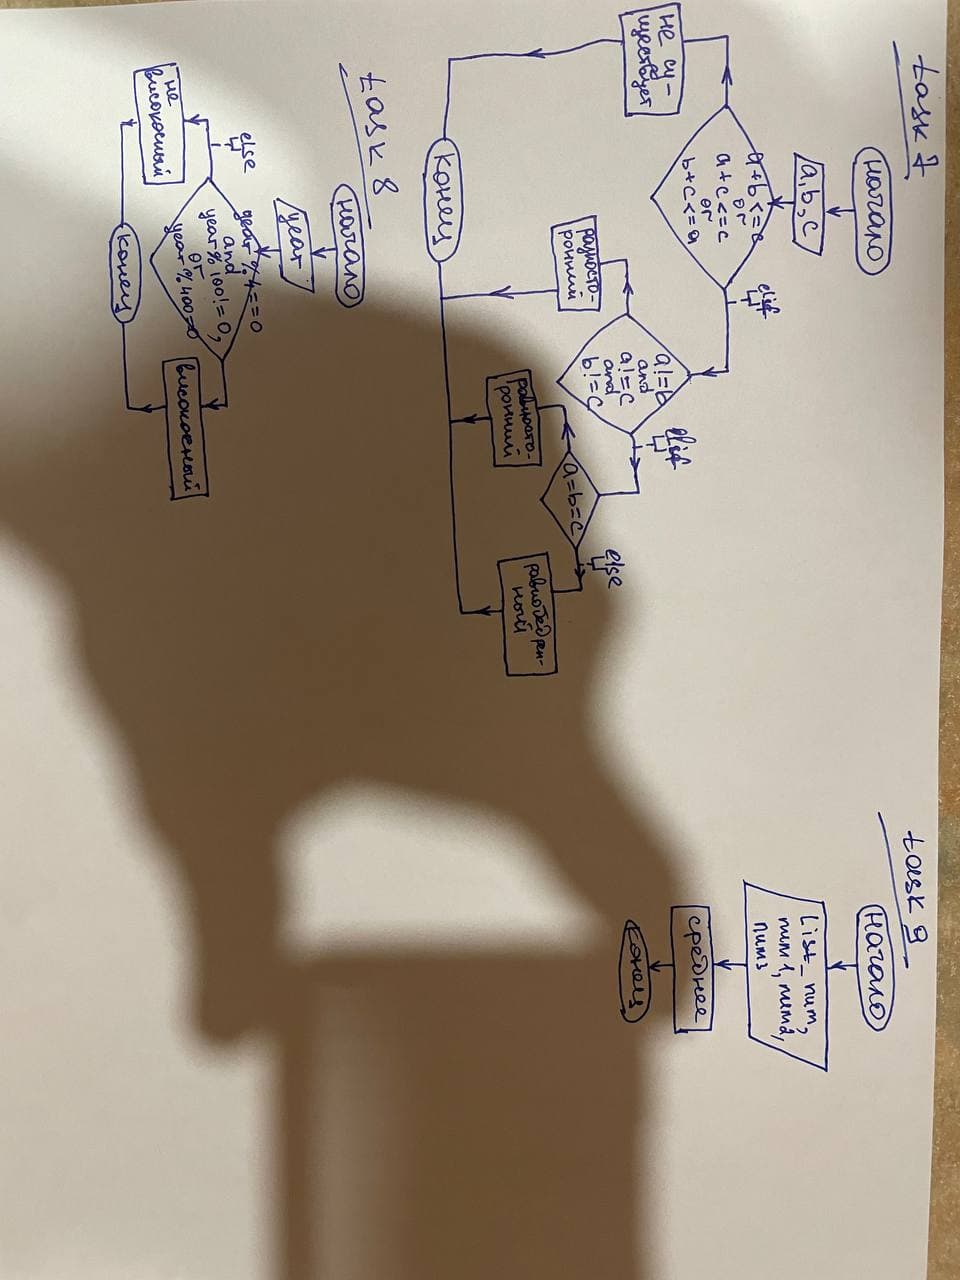 task 7
начало
a, b, c
a+b<=c
or
a+c<=c
or
b+c<=a
elif
не су-
ществует
a!=b
and
a!=c
and
b!=c
elif
разносто-
ронний
a=b=c
else
равносто-
ронний
равнобедрен-
ный
конец
task 8
начало
year
year % 4==0
and
year % 100!=0,
or
year % 400=0
else
не
високосный
високосный
конец
task 9
начало
List_num,
num1, num2,
num3
среднее
конец